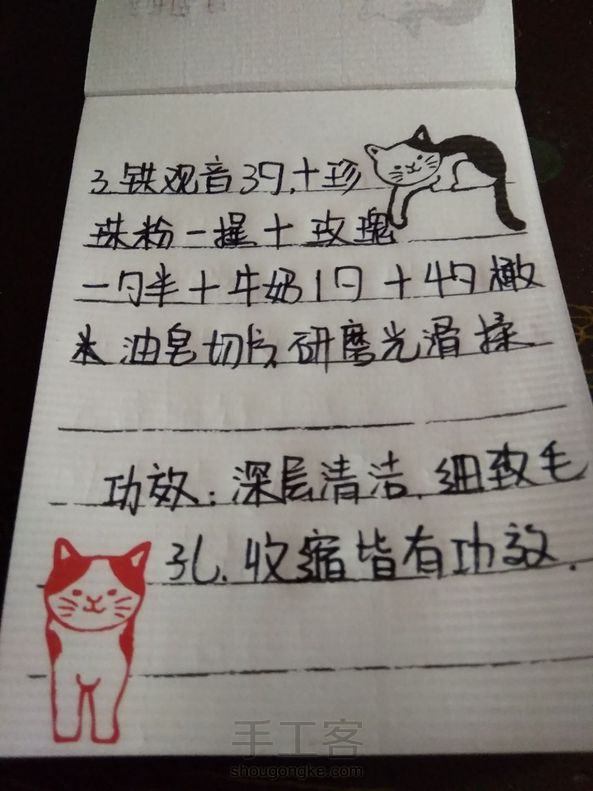 3.铁观音3勺,+珍
珠粉一撮+玫瑰
一勺半+牛奶1勺+4勺橄
油皂切片,研磨光滑揉
功效:深层清洁.细致毛
孔.收缩皆有功效.
手工客
shougongke.com